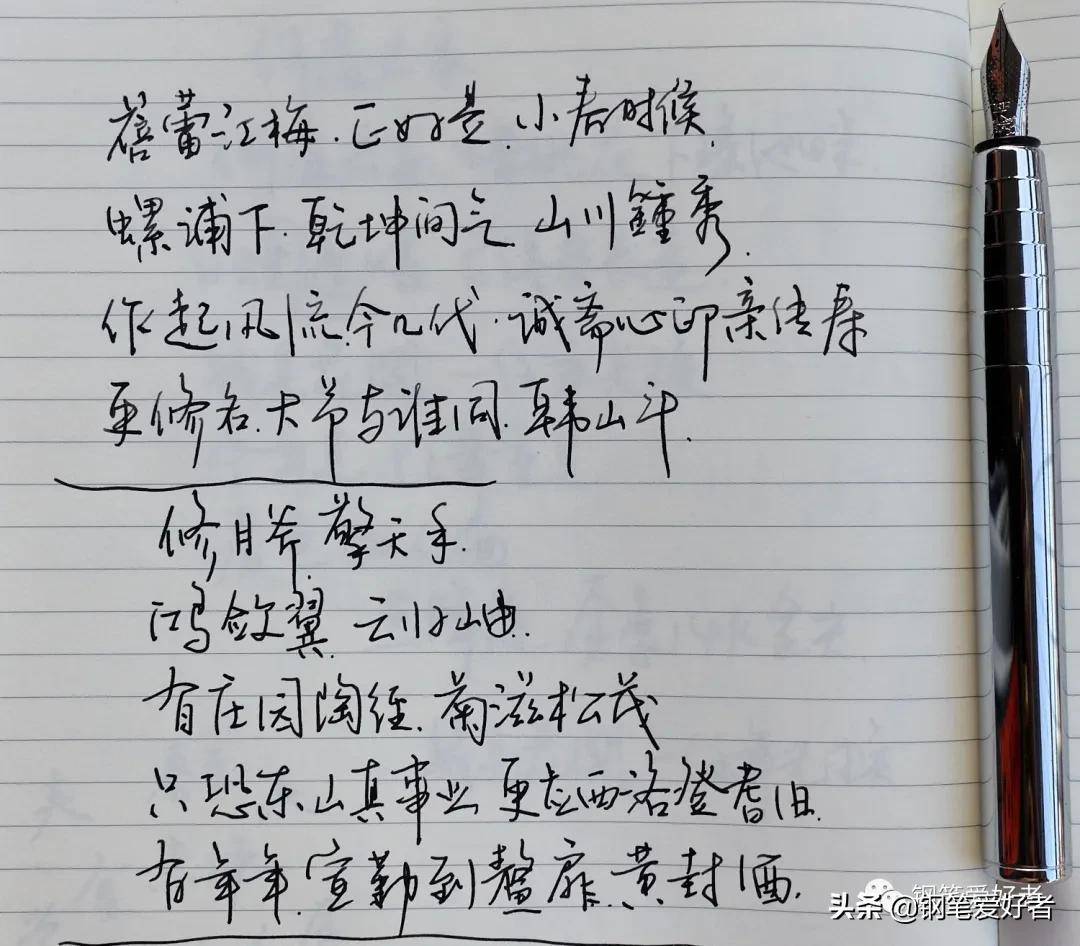 蓓蕾江梅.正好是.小春时候.
螺浦下.乾坤间气 山川鐘秀.
作起风流.今几代.诚斋心印亲传奏
更修名.大节与谁同.韩山斗.
修月斧.擎天手.
鸿敛翼.云归岫.
有庄园陶径.菊滋松茂
只恐东山真事业 更西洛登耆旧.
有年年.宣勤到鳌扉.黄封酒.
钢笔爱好者
头条 @钢笔爱好者